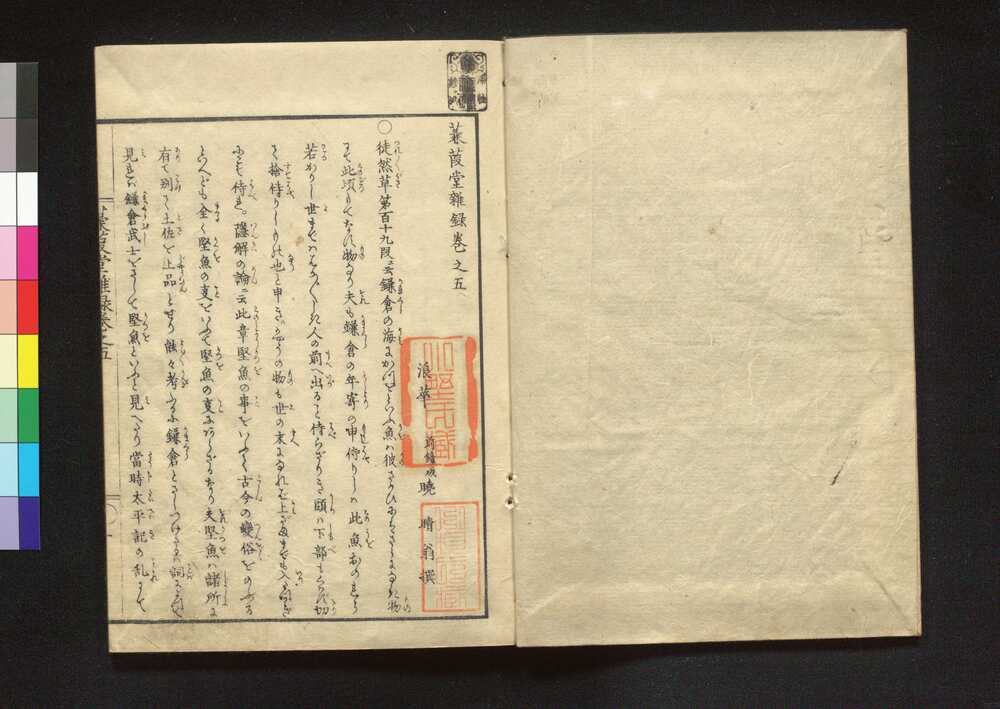 蒹葭堂雜録巻之五
浪華 暁 晴翁撰
○徒然草第百十九段ニ云鎌倉の海にかつをといふ魚ハ彼さかひにハさうなき物
にて此頃もてなす物なり夫も鎌倉の年寄の申侍りしハ此魚おのれら
若かりし世まではハかばかしき人の前へ出ること侍らざりき頭ハ下部もくはず切
て捨侍りしもの也と申きかやうの物も世の末になれば上ざままでも入たつわざ
にこそ侍れ。諺解の論ニ云此章堅魚の事をいふて古今の變俗をのぶる
といへども全く堅魚の事をいふて堅魚の事にあらざるなり夫堅魚ハ諸所に
有て別て土佐を上品とせり熟々考ふるに鎌倉とさしつけたる詞にして
見れバ鎌倉武士をさして堅魚といふと見へたり當時太平記の乱にして
蒹葭堂雜録巻之五